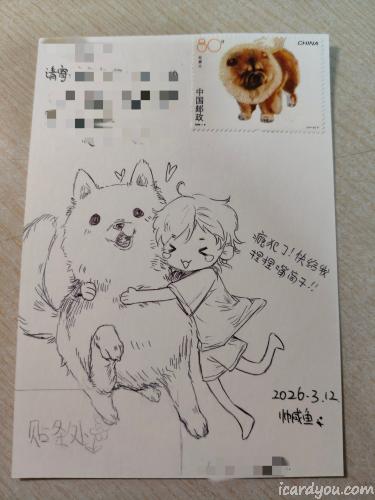 80分
CHINA
中国邮政
瘾犯了!快给我
捏捏嘴筒子!!
2026.3.12
帅咸鱼
贴条处
icardyou.com